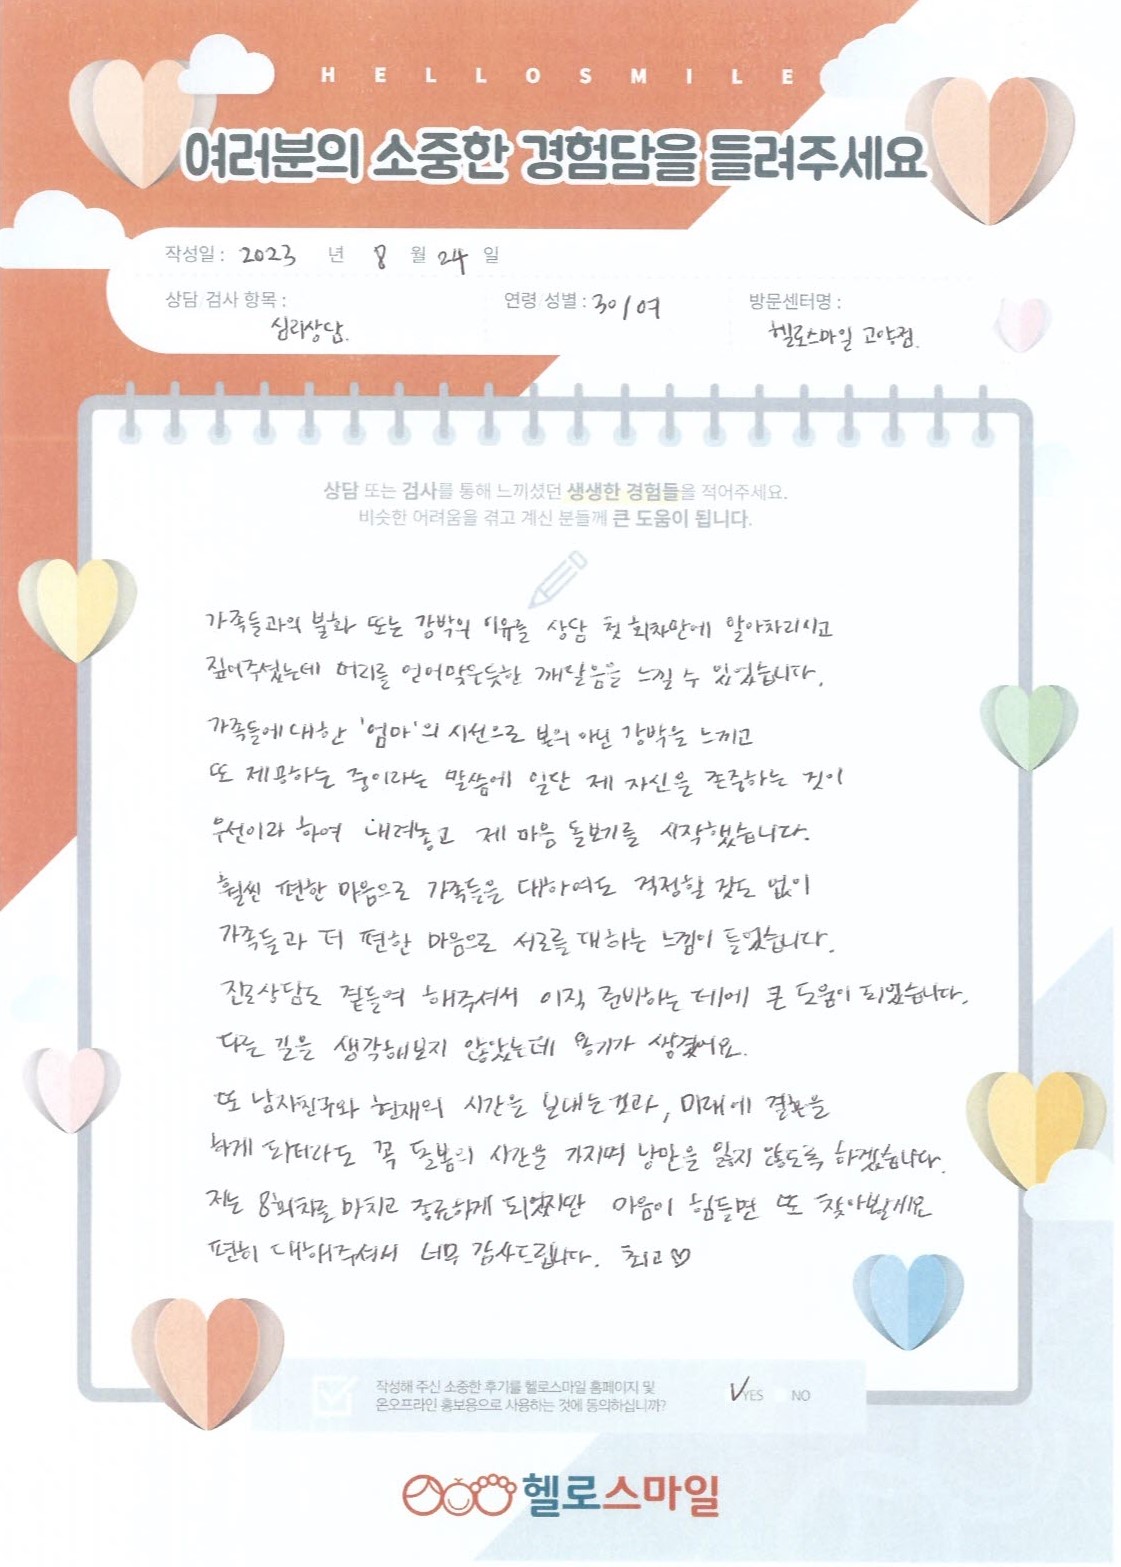 HELLOSMILE
여러분의 소중한 경험담을 들려주세요
작성일 : 2023 년 8 월 24 일
상담 검사 항목 : 심리상담.
연령 성별 : 30 / 여
방문센터명 : 헬로스마일 고양점.
상담 또는 검사를 통해 느끼셨던 생생한 경험들을 적어주세요.
비슷한 어려움을 겪고 계신 분들께 큰 도움이 됩니다.
가족들과의 불화 또는 강박의 이유를 상담 첫 회차만에 알아차리시고
짚어주셨는데 머리를 얻어맞은듯한 깨달음을 느낄 수 있었습니다.
가족들에 대한 '엄마'의 시선으로 본의 아닌 강박을 느끼고
또 제공하는 중이라는 말씀에 일단 제 자신을 존중하는 것이
우선이라 하여 내려놓고 제 마음 돌보기를 시작했습니다.
훨씬 편한 마음으로 가족들을 대하여도 걱정할 것도 없이
가족들과 더 편한 마음으로 서로를 대하는 느낌이 들었습니다.
진로상담도 곁들여 해주셔서 이직 준비하는 데에 큰 도움이 되었습니다.
다른 길은 생각해보지 않았는데 용기가 생겼어요.
또 남자친구와 현재의 시간을 보내는 것과, 미래에 결혼을
하게 되더라도 꼭 돌봄의 시간을 가지며 낭만을 잃지 않도록 하겠습니다.
저는 8회차를 마치고 종료하게 되었지만 마음이 힘들면 또 찾아뵐게요
편히 대해주셔서 너무 감사드립니다. 최고♡
작성해 주신 소중한 후기를 헬로스마일 홈페이지 및
온오프라인 홍보용으로 사용하는 것에 동의하십니까?
YES NO
헬로스마일